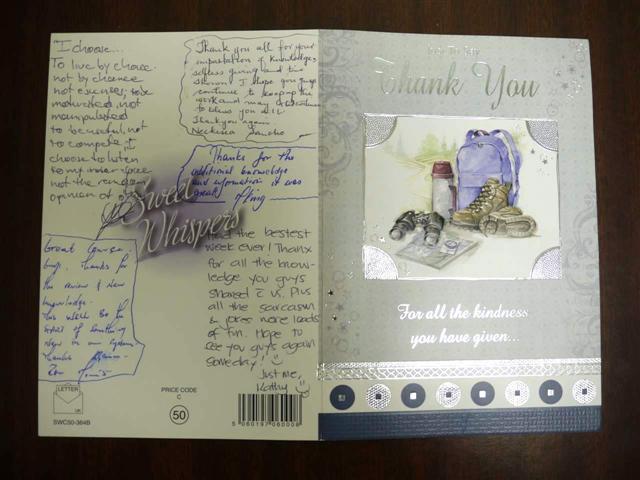 "I choose...
To live by choice.
not by chance
not excuses, to be
motivated, not
manipulated
to be useful, not
to compete I
choose to listen
to my inner voice
not the random
opinion of
Thank you all for your
impartation of knowledge,
selfless giving and
I hope you guys
continue to keep up the
work and may
to bless you all
Thank you again
Thanks for the
additional knowledge
and information it was
great
Sweet
Whispers
Great Course
Thanks for
the review & new
knowledge.
This week
of something
new in our
Thanks
the bestest
week ever! Thanx
for all the know-
ledge you guys
shared c us. Plus
all the sarcasm
& jokes were loads
of fun. Hope to
see you guys again
someday!
Just me,
Kathy
LETTER
UK
SWC50-364B
PRICE CODE
C
50
5 060197 060008
Just To Say
Thank You
For all the kindness
you have given...